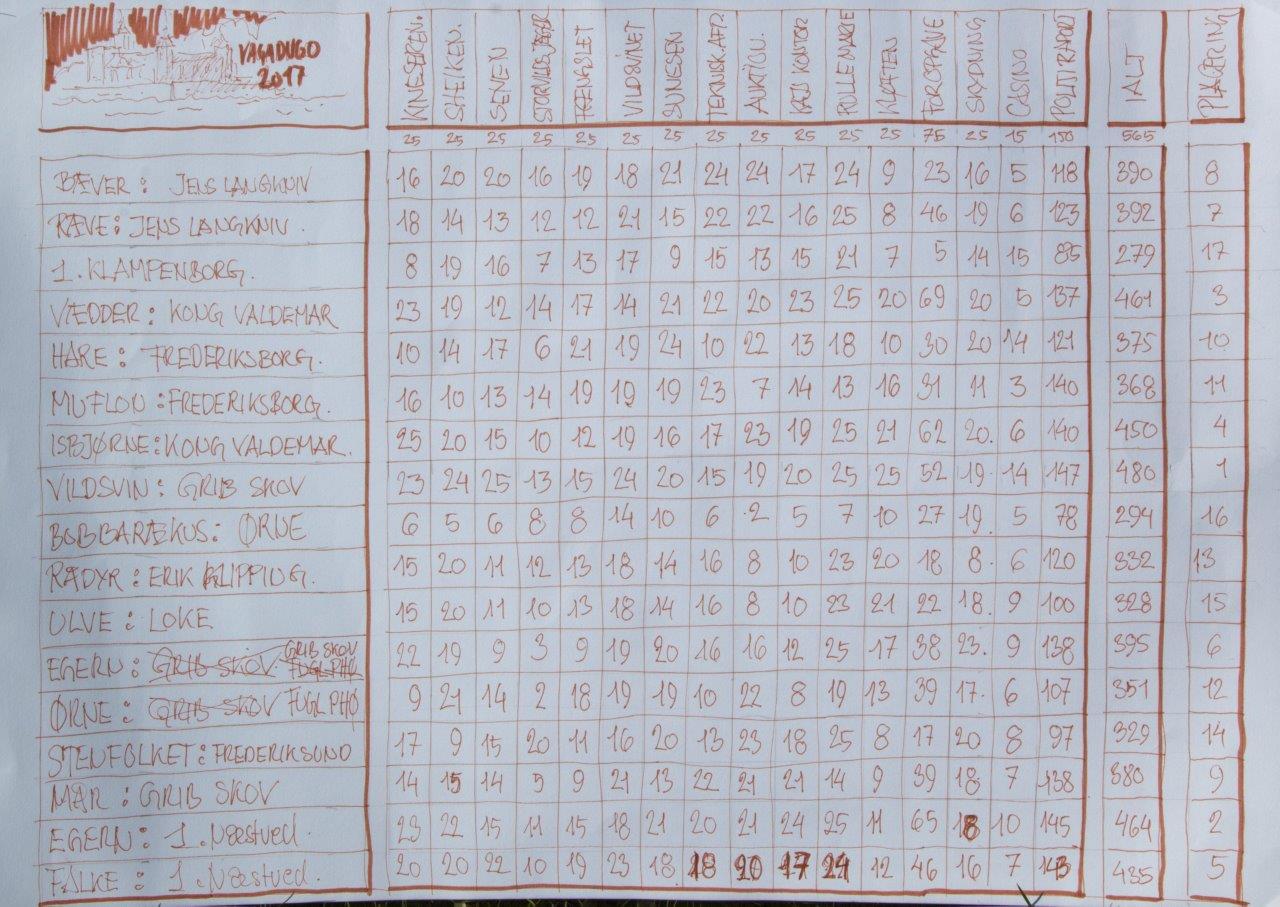 VAGADUGO
2017
KINESEREN. SHEIKEN. SENEN STORVILDTJÆGER FÆNGSLET VILDSVINET SUNESSEN TEKNISK AFD. AUKTION. KAJ KONTOR RULLEMARIE KLATTEN FORSPANE SKYDNING CASINO POLITI RAPORT IALT PLACERING
25 25 25 25 25 25 25 25 25 25 25 25 75 25 15 150 565
BÆVER: JENS LANGKNIV 16 20 20 16 19 18 21 24 24 17 24 9 23 16 5 118 390 8
RÆVE: JENS LANGKNIV. 18 14 13 12 12 21 15 22 22 16 25 8 46 19 6 123 392 7
1. KLAMPENBORG. 8 19 16 7 13 17 9 15 13 15 21 7 5 14 15 85 279 17
VÆDDER: KONG VALDEMAR 23 19 12 14 17 14 21 22 20 23 25 20 69 20 5 137 461 3
HARE: FREDERIKSBORG. 10 14 17 6 21 19 24 10 22 13 18 10 30 20 14 121 375 10
MUFLON: FREDERIKSBORG. 16 10 13 14 19 19 19 23 7 14 13 16 31 11 3 140 368 11
ISBJØRNE: KONG VALDEMAR. 25 20 15 10 12 19 16 17 23 19 25 21 62 20. 6 140 450 4
VILDSVIN: GRIB SKOV 23 24 25 13 15 24 20 15 19 20 25 25 52 19. 14 147 480 1
BOBBARÆKUS: ØRNE 6 5 6 8 8 14 10 6 2 5 7 10 27 19. 5 78 294 16
RÅDYR: ERIK KLIPPING. 15 20 11 12 13 18 14 16 8 10 23 20 18 8. 6 120 332 13
ULVE: LOKE 15 20 11 10 13 18 14 16 8 10 23 21 22 18. 9 100 328 15
EGERN: GRIB SKOV FUGLPHØ GRIB SKOV 22 19 9 3 9 19 20 16 16 12 25 17 38 23. 9 138 395 6
ØRNE: GRIB SKOV FUGLPHØ 9 21 14 2 18 19 19 10 22 8 19 13 39 17. 6 107 351 12
STENFOLKET: FREDERIKSUND 17 9 15 20 11 16 20 13 23 18 25 8 17 20 8 97 329 14
MÅR: GRIB SKOV 14 15 14 5 9 21 13 22 21 21 14 9 39 18 7 138 380 9
EGERN: 1. Næstved. 23 22 15 11 15 18 21 20 21 24 25 11 65 18 10 145 464 2
FALKE: 1. Næstved. 20 20 22 10 19 23 18. 18 20 17 24 12 46 16 7 143 435 5